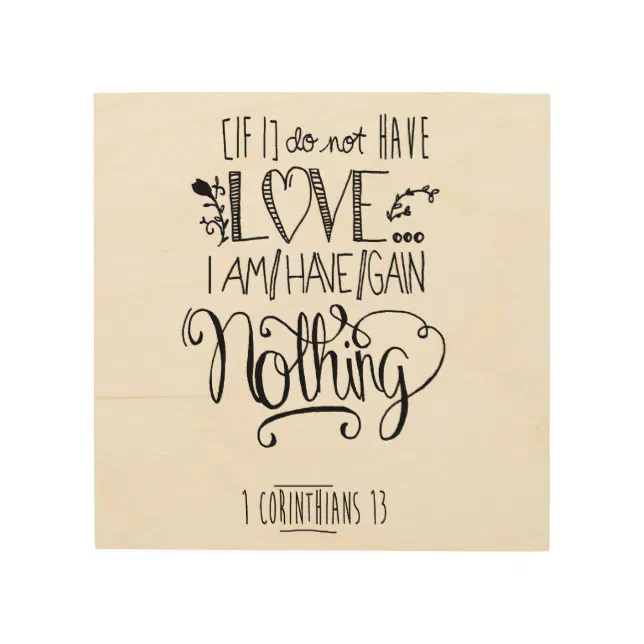 [IF I] do not HAVE
LOVE...
I AM/HAVE/GAIN
Nothing
1 CORINTHIANS 13